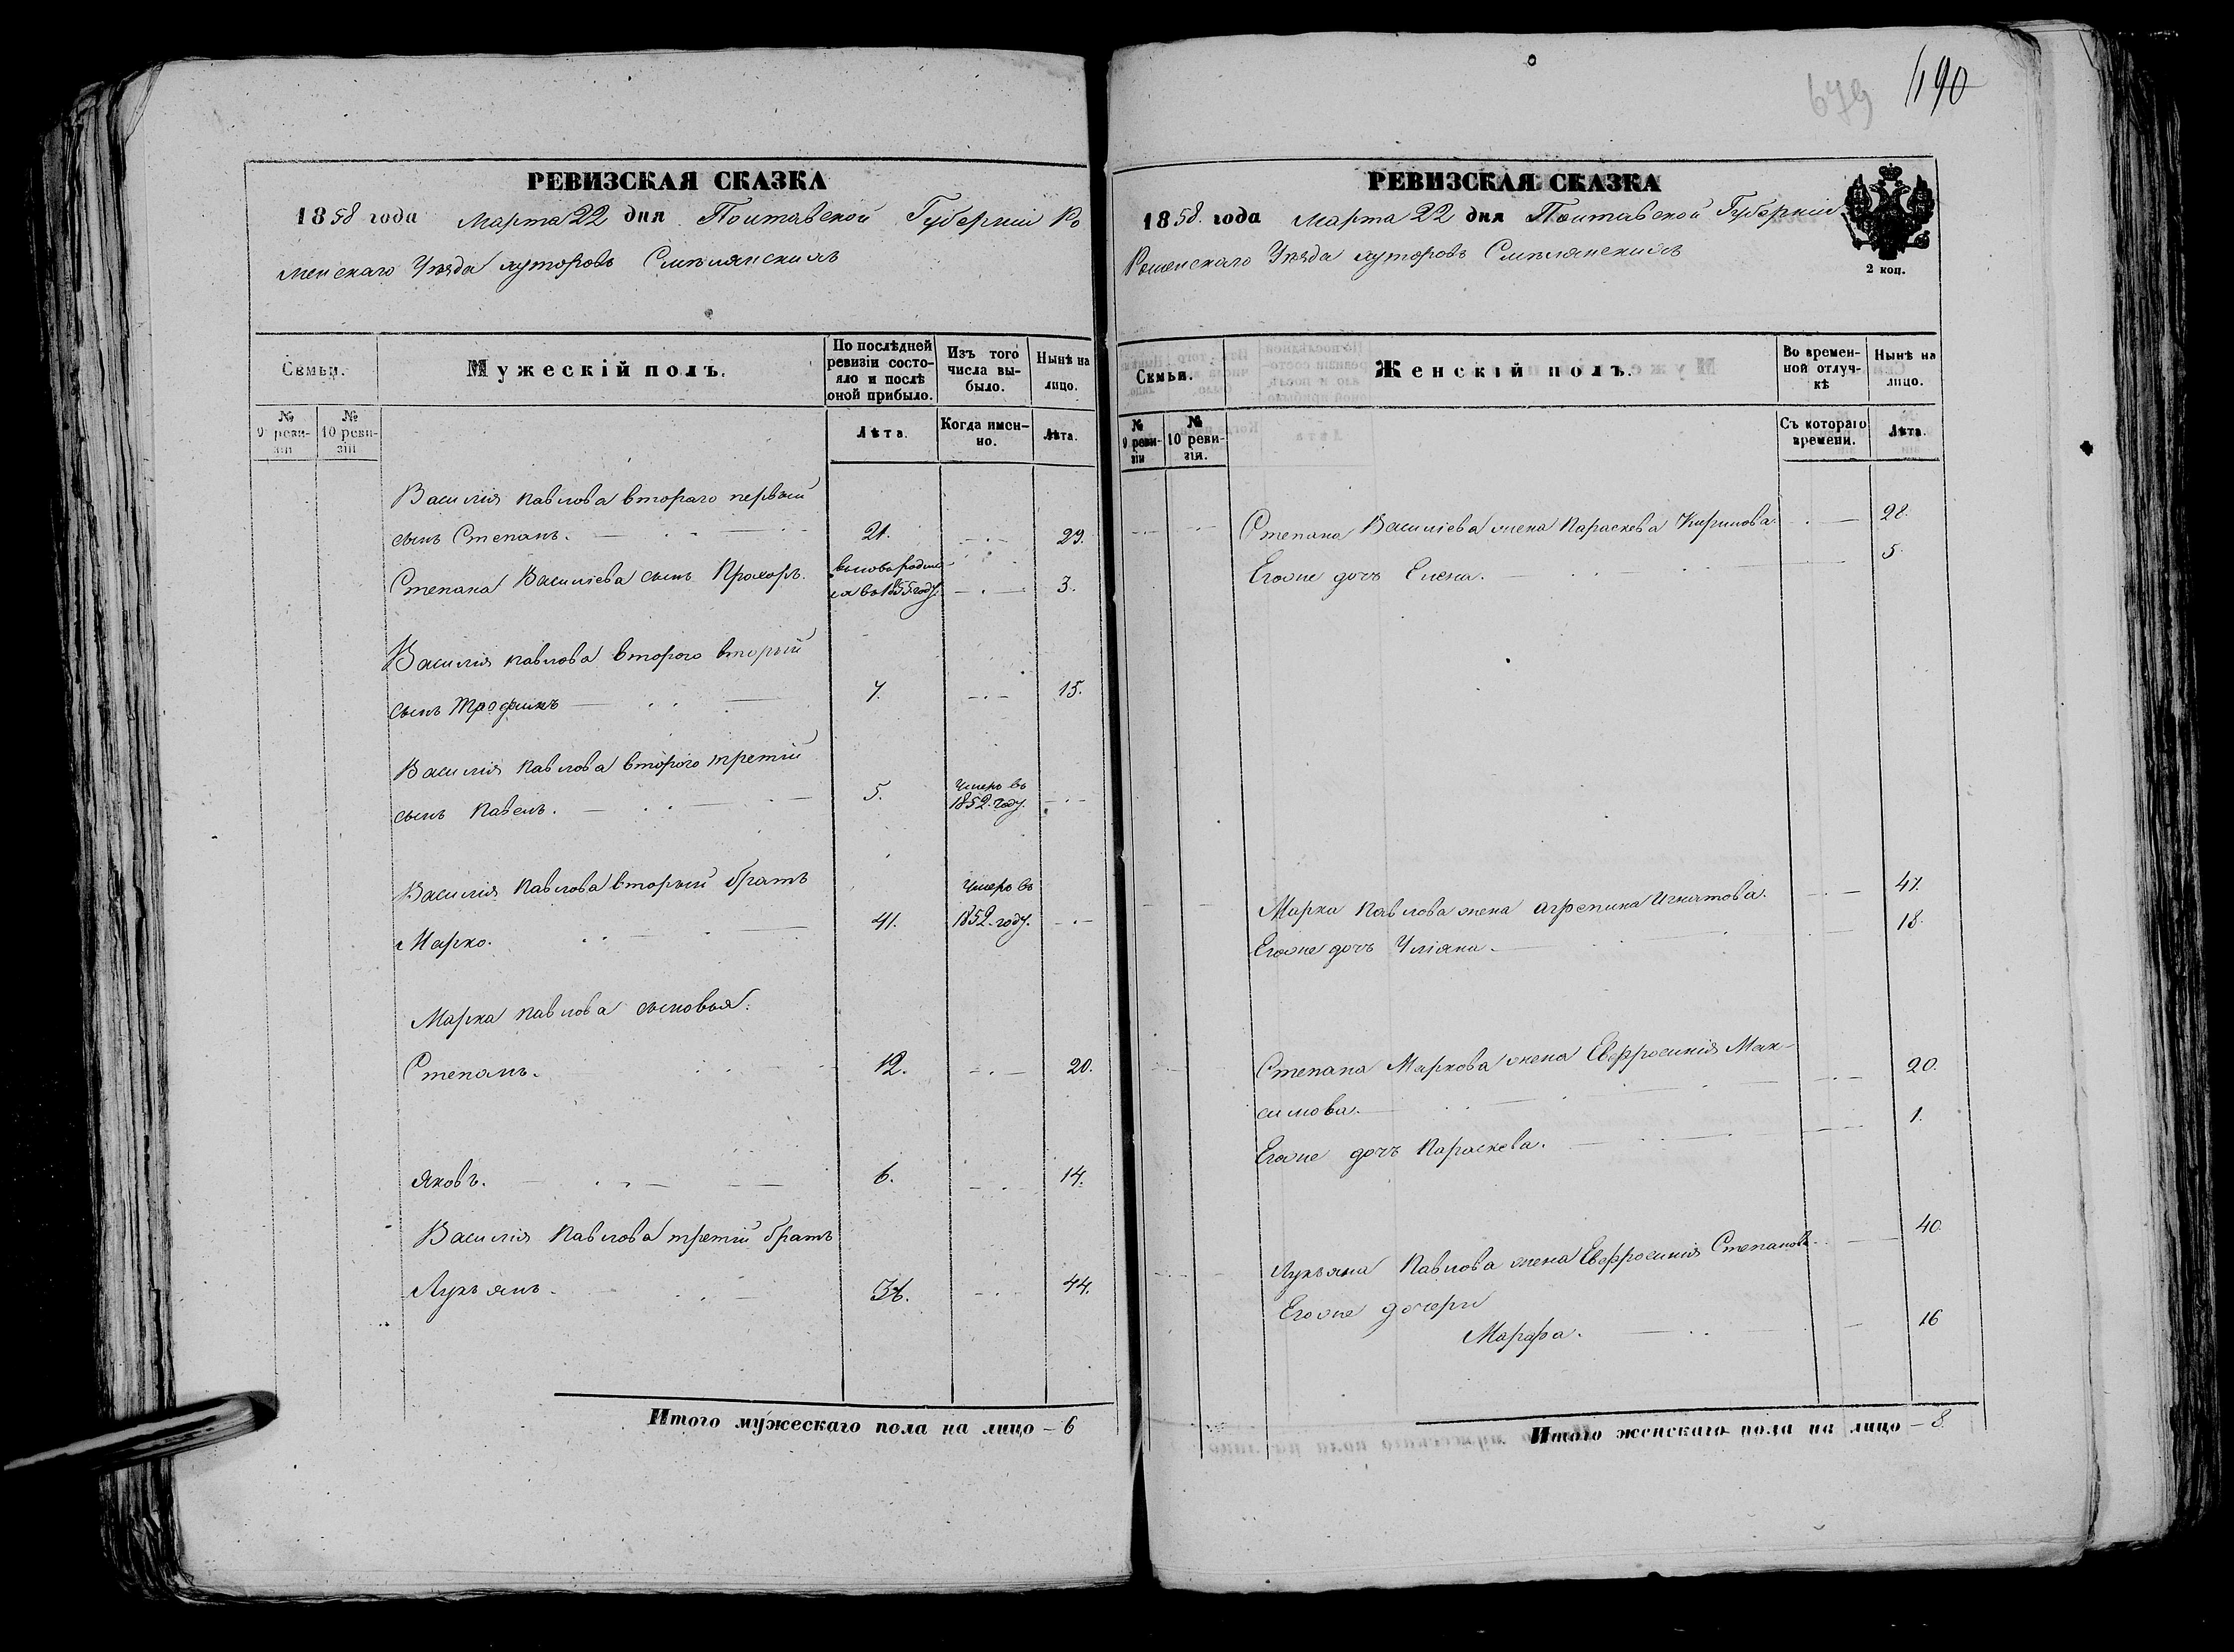 679 490
РЕВИЗСКАЯ СКАЗКА
1858 года Марта 22 дня Полтавской Губерніи Ро
менскаго Уѣзда хуторовъ Смѣлянскихъ
Семьи. Мужескій полъ. По послѣдней ревизіи состояло и послѣ оной прибыло. Изъ того числа выбыло. Нынѣ на лицо.
№ 9 реви-зіи № 10 реви-зіи Лѣта. Когда имен-но. Лѣта.
Василія Павлова втораго первый
сынъ Степанъ. 21. 29.
Степана Василіева сынъ Прохоръ. вновь родил
ся въ 1855 году. 3.
Василія Павлова второго вторый
сынъ Трофимъ 7. 15.
Василія Павлова второго третій
сынъ Павелъ. 5. Умеръ въ
1852. году.
Василія Павлова вторый братъ Умеръ въ
Марко. 41. 1852. году.
Марка Павлова сыновья:
Степанъ. 12. 20.
Яковъ. 6. 14.
Василія Павлова третій братъ
Лукъянъ. 36. 44.
Итого мужескаго пола на лицо – 6
РЕВИЗСКАЯ СКАЗКА
1858. года Марта 22 дня Полтавской Губерніи
Роменскаго Уѣзда хуторовъ Смѣлянскихъ
2 коп.
Семьи. Женскій полъ. Во времен-ной отлуч-кѣ Нынѣ на лицо.
№ 9 реви-зіи № 10 реви-зія. Съ котораго времени. Лѣта.
Степана Василіева жена Параскева Кирилова. 28.
Егоже дочь Елена. 5.
Марка Павлова жена Агрепина Игнатова. 47.
Егоже дочь Уліяна. 18.
Степана Маркова жена Евфросинія Мак-
симова. 20.
Егоже дочь Параскева. 1.
Лукъяна Павлова жена Евфросинія Степанова. 40.
Егоже дочери
Марфа. 16
Итого женскаго пола на лицо – 8.